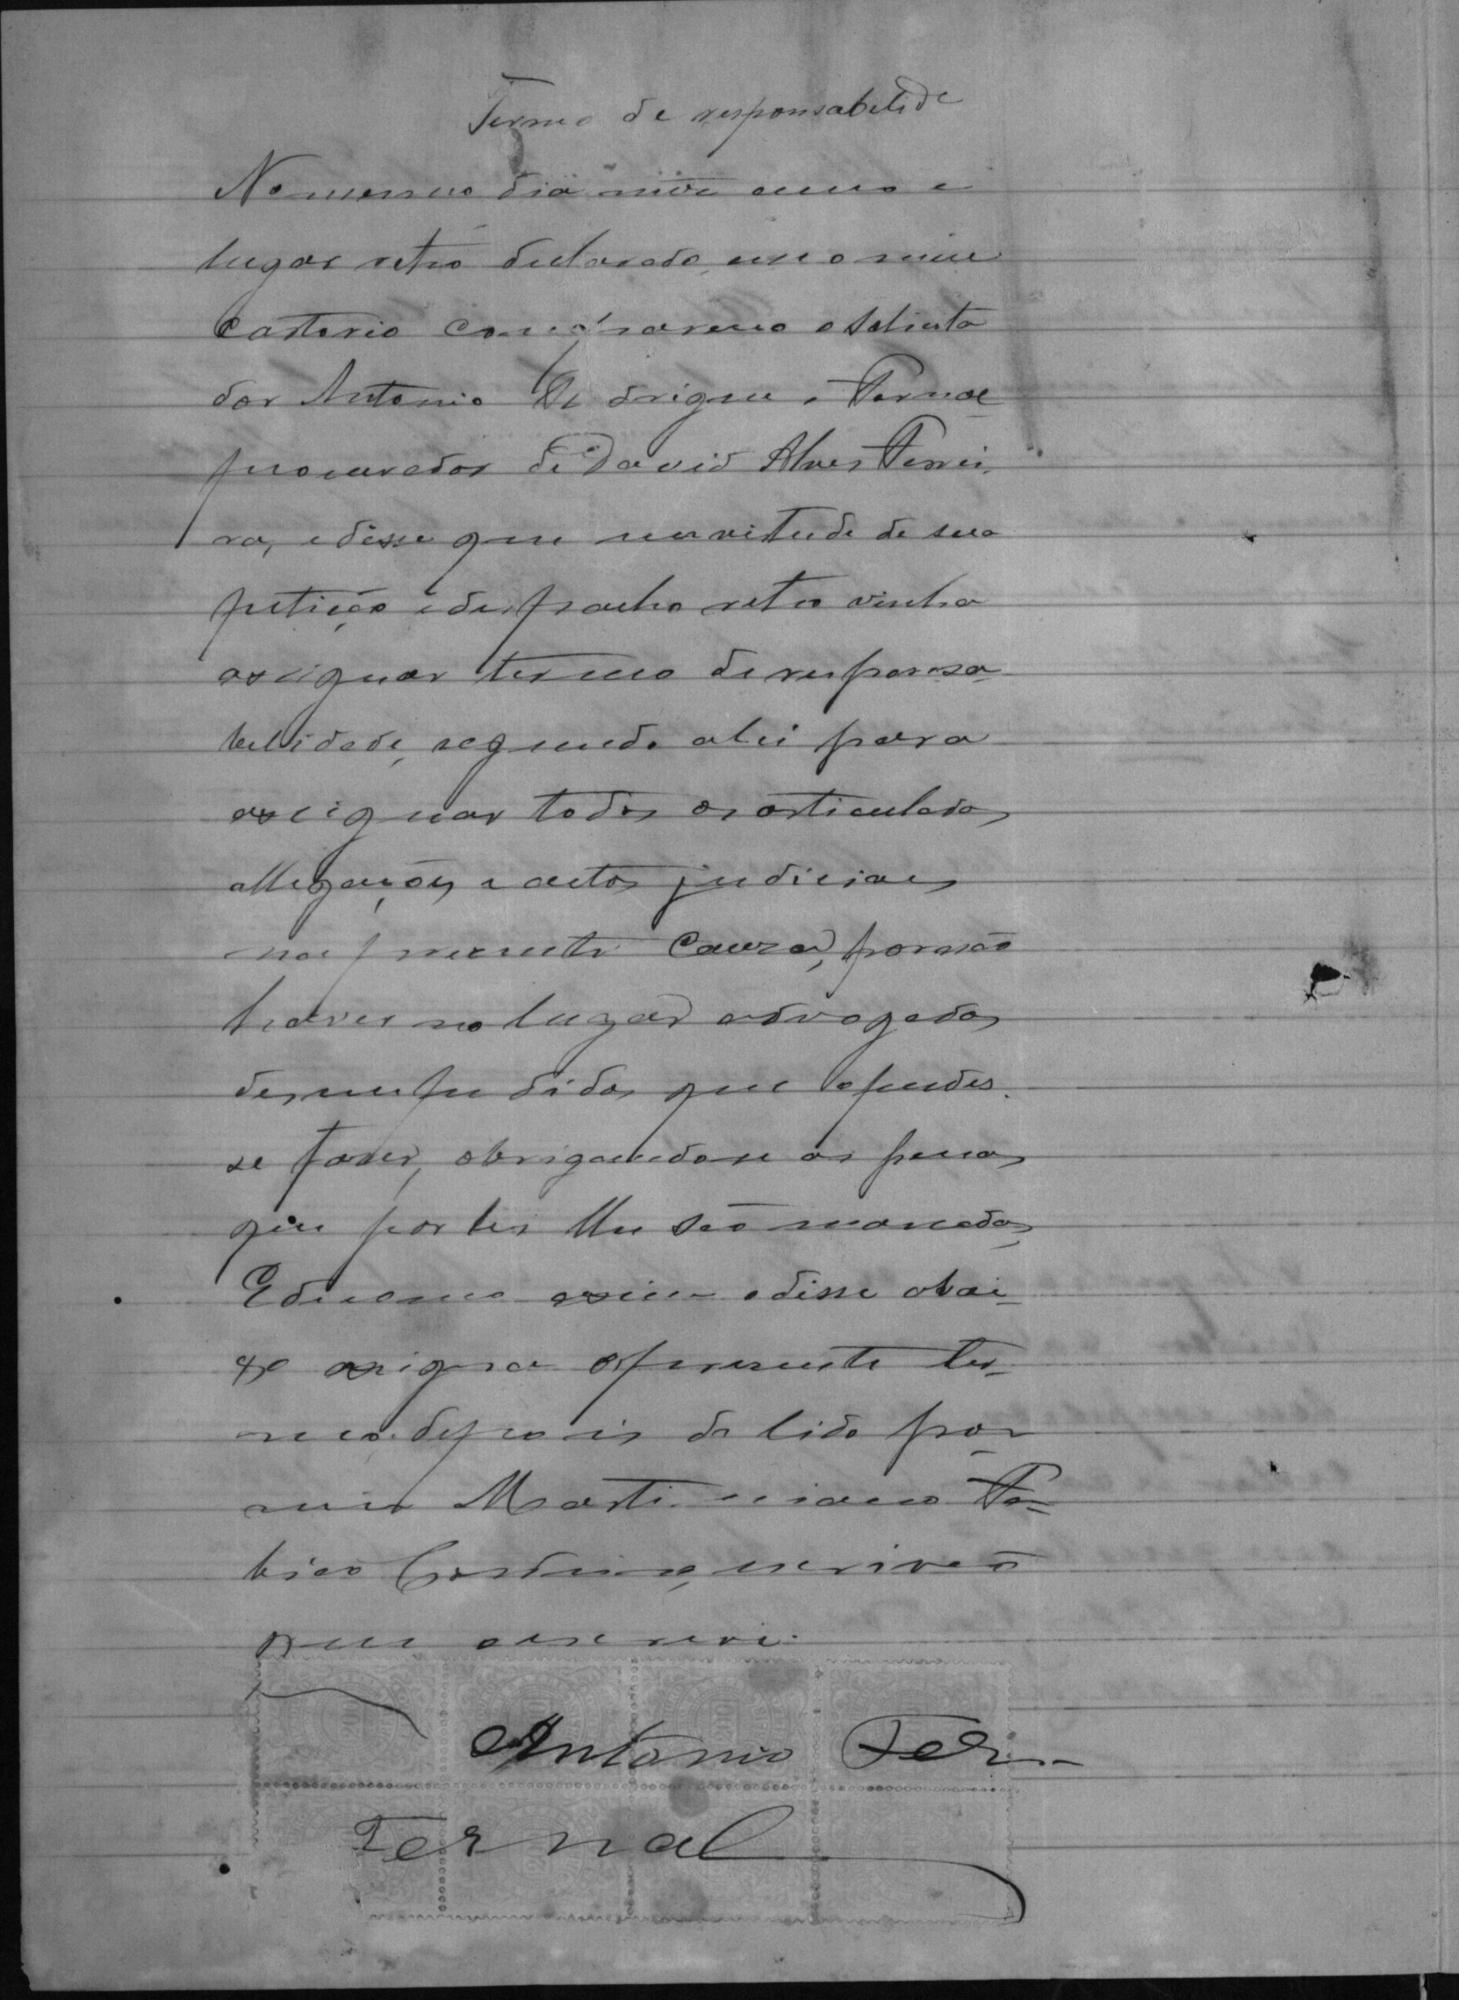 Termo de responsabelide
No mesmo dia mez anno e
lugar retro declarado, em o meu
cartorio compareceo o Solicita
dor Antonio Rodrigues Fernal
procurador de David Alves Ferrei-
ra, e disse que em vertude de sua
petição e despacho retro vinha
assignar termo de responsa-
belidade, segundo a lei para
assignar todos os articulados
allegações e actos judiciaes
na presente Cauza, por não
haver no lugar advogados
desempedidos que o podes-
se fazer, obrigando se as penas
que por lei lhe são marcadas,
E de como assim o disse abai-
xo assigna o presente ter-
mo depois de lido por
mim Martiniano Fa-
bico escrivão
que escrevi.
Antonio
Fernal